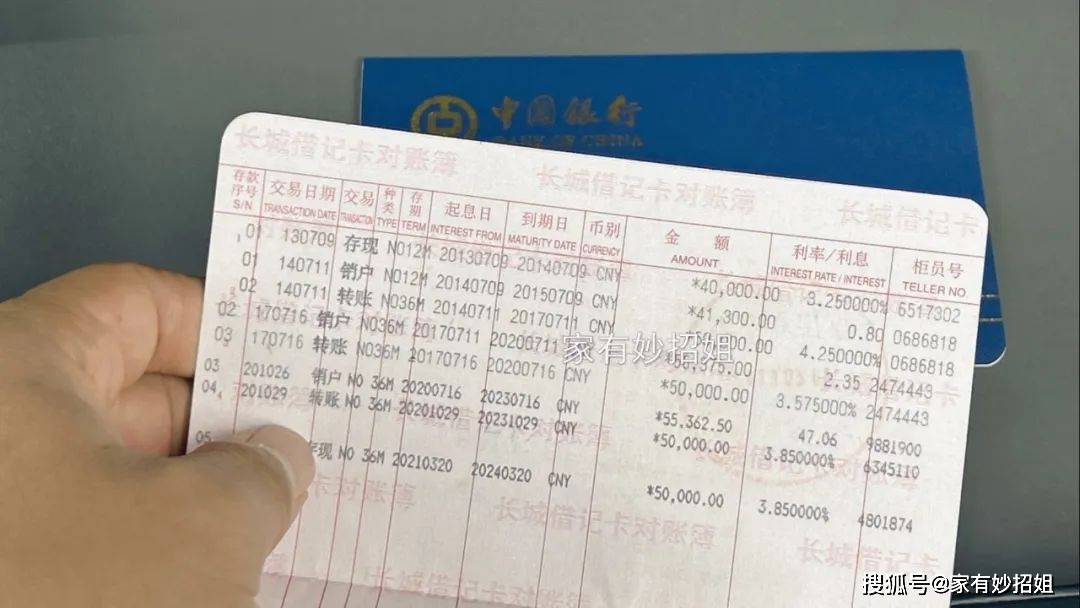 中国银行
BANK OF CHINA
长城借记卡对账簿 长城借记卡对账簿 长城借记卡
存款序号 交易日期 交易 种类 存期 起息日 到期日 币别 金额 利率/利息 柜员号
S/N TRANSACTION DATE TRANSACTION TYPE TERM INTEREST FROM MATURITY DATE CURRENCY AMOUNT INTEREST RATE / INTEREST TELLER NO.
01 130709 存现 N012M 20130709 20140709 CNY *40,000.00 3.250000% 6517302
01 140711 销户 N012M 20140709 20150709 CNY *41,300.00 0.80 0686818
02 140711 转账 N036M 20140711 20170711 CNY 4.250000% 0686818
02 170716 销户 N036M 20170711 20200711 2.35 2474443
03 170716 转账 N036M 20170716 20200716 CNY *50,000.00 3.575000% 2474443
03 201026 销户 NO 36M 20200716 20230716 CNY *55,362.50 47.06 9881900
04 201029 转账 NO 36M 20201029 20231029 CNY *50,000.00 3.850000% 6345110
05 存现 NO 36M 20210320 20240320 CNY *50,000.00 3.850000% 4801874
家有妙招姐
长城借记卡对账簿
长城借记卡
搜狐号@家有妙招姐